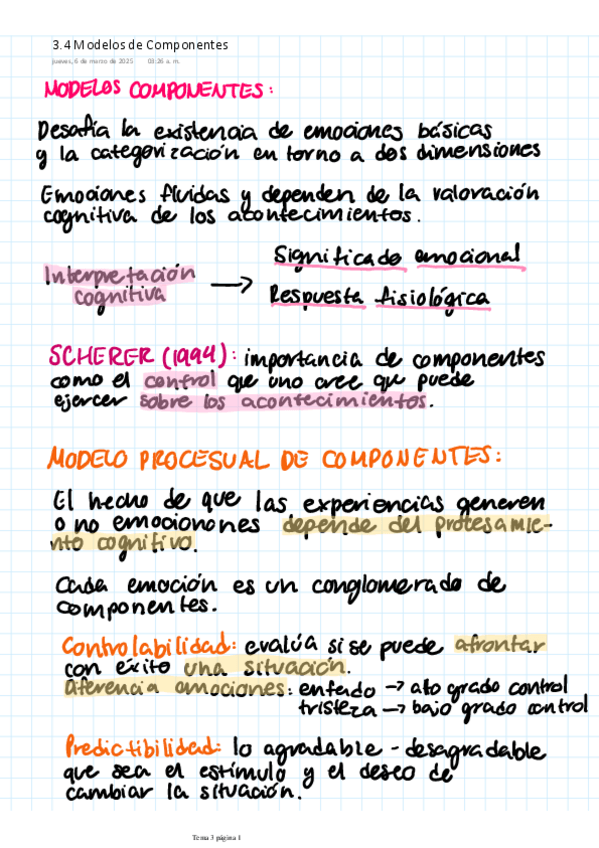 3.4 Modelos de Componentes
jueves, 6 de marzo de 2025 03:26 a. m.
MODELOS COMPONENTES:
Desafía la existencia de emociones básicas
y la categorización en torno a dos dimensiones
Emociones fluidas y dependen de la valoración
cognitiva de los acontecimientos.
Interpretación
cognitiva
→
Significado emocional
Respuesta fisiológica
SCHERER (1994): importancia de componentes
como el control que uno cree que puede
ejercer sobre los acontecimientos.
MODELO PROCESUAL DE COMPONENTES:
El hecho de que las experiencias generen
o no emociones depende del protesamie-
nto cognitivo.
Cada emoción es un conglomerado de
componentes.
Controlabilidad: evalúa si se puede afrontar
con éxito una situación.
Diferencia emociones: enfado → alto grado control
tristeza → bajo grado control
Predictibilidad: lo agradable - desagradable
que sea el estímulo y el deseo de
cambiar la situación.
Tema 3 página 1